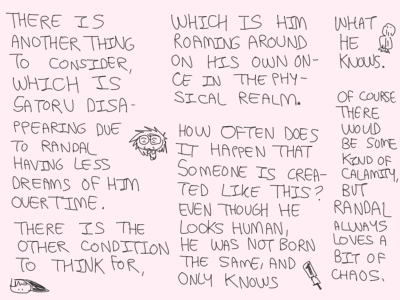 THERE IS
ANOTHER THING
TO CONSIDER,
WHICH IS
SATORU DISA-
PPEARING DUE
TO RANDAL
HAVING LESS
DREAMS OF HIM
OVERTIME.
THERE IS THE
OTHER CONDITION
TO THINK FOR,
WHICH IS HIM
ROAMING AROUND
ON HIS OWN ON-
CE IN THE PHY-
SICAL REALM.
HOW OFTEN DOES
IT HAPPEN THAT
SOMEONE IS CREA-
TED LIKE THIS?
EVEN THOUGH HE
LOOKS HUMAN,
HE WAS NOT BORN
THE SAME, AND
ONLY KNOWS
WHAT
HE
KNOWS.
OF COURSE
THERE
WOULD
BE SOME
KIND OF
CALAMITY,
BUT
RANDAL
ALWAYS
LOVES A
BIT OF
CHAOS.